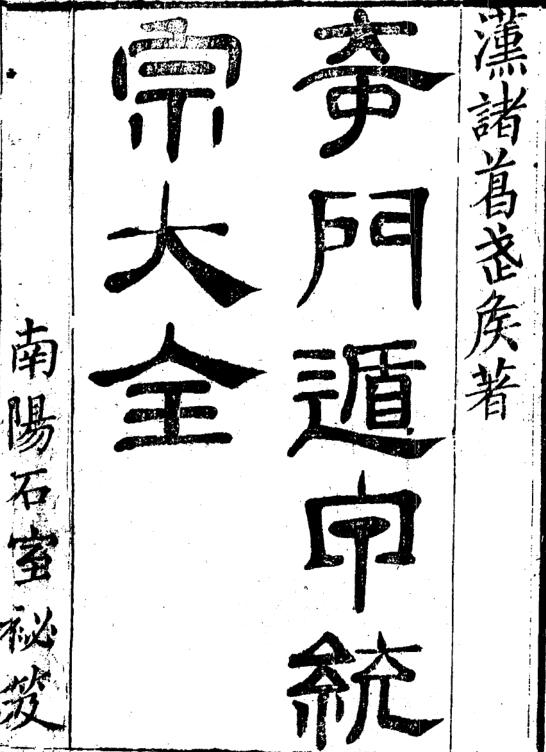 漢諸葛武侯著
奇門遁甲統
宗大全
南陽石室秘笈